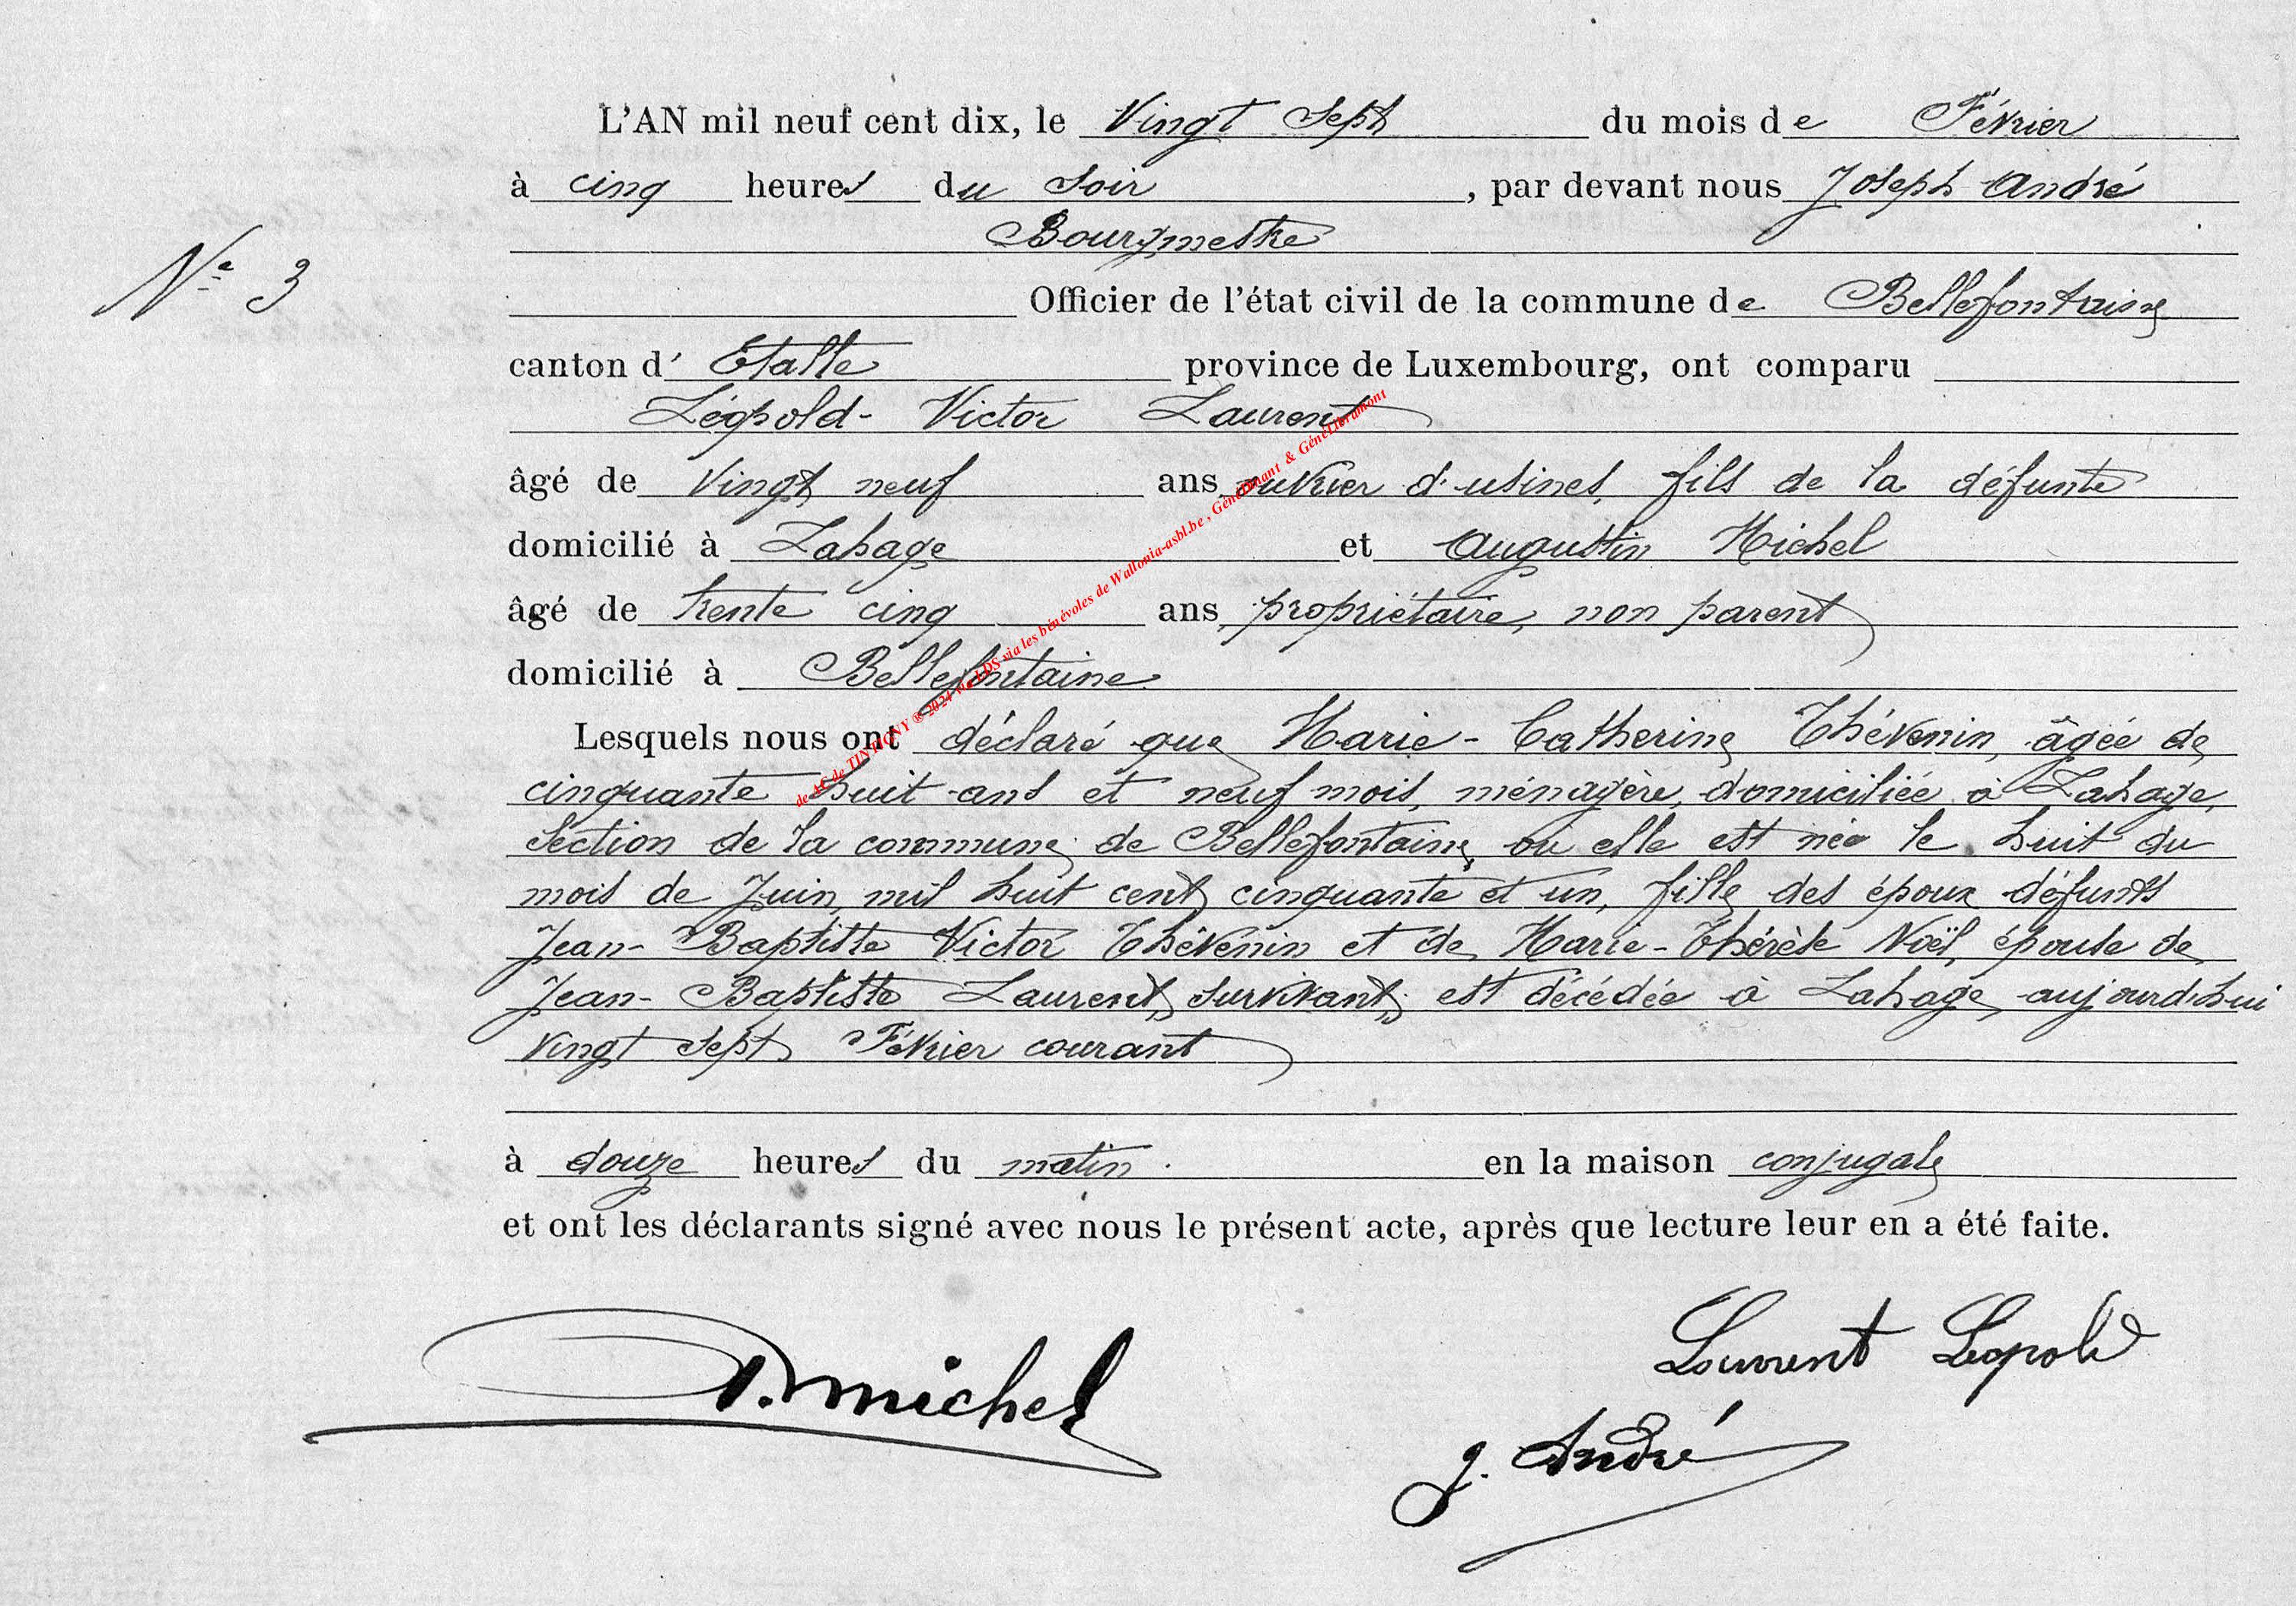 L'AN mil neuf cent dix, le Vingt Sept du mois de Février
à cinq heures du soir, par devant nous Joseph André
Bourgmestre
N° 3
Officier de l'état civil de la commune de Bellefontaine
canton d' Etalle province de Luxembourg, ont comparu
Léopold- Victor Laurent
âgé de vingt neuf ans, ouvrier d'usines, fils de la défunte
domicilié à Lahage et Augustin Michel
âgé de trente cinq ans, propriétaire, non parent
domicilié à Bellefontaine
Lesquels nous ont déclaré que Marie-Catherine Thévenin, âgée de
cinquante huit ans et neuf mois, ménagère, domiciliée à Lahage,
section de la commune de Bellefontaine, où elle est née le huit du
mois de Juin, mil huit cent cinquante et un, fille des époux défunts
Jean-Baptiste Victor Thévenin et de Marie-Thérèse Noël, épouse de
Jean-Baptiste Laurent, survivant, est décédée à Lahage, aujourd'hui
vingt sept Février courant
à douze heures du matin. en la maison conjugale
et ont les déclarants signé avec nous le présent acte, après que lecture leur en a été faite.
Laurent Léopold
A. Michel
J. André
de AC de TINTIGNY ® 2024 via LDS via les bénévoles de Wallonia-asbl.be, GénéDinant & GénéLibramont